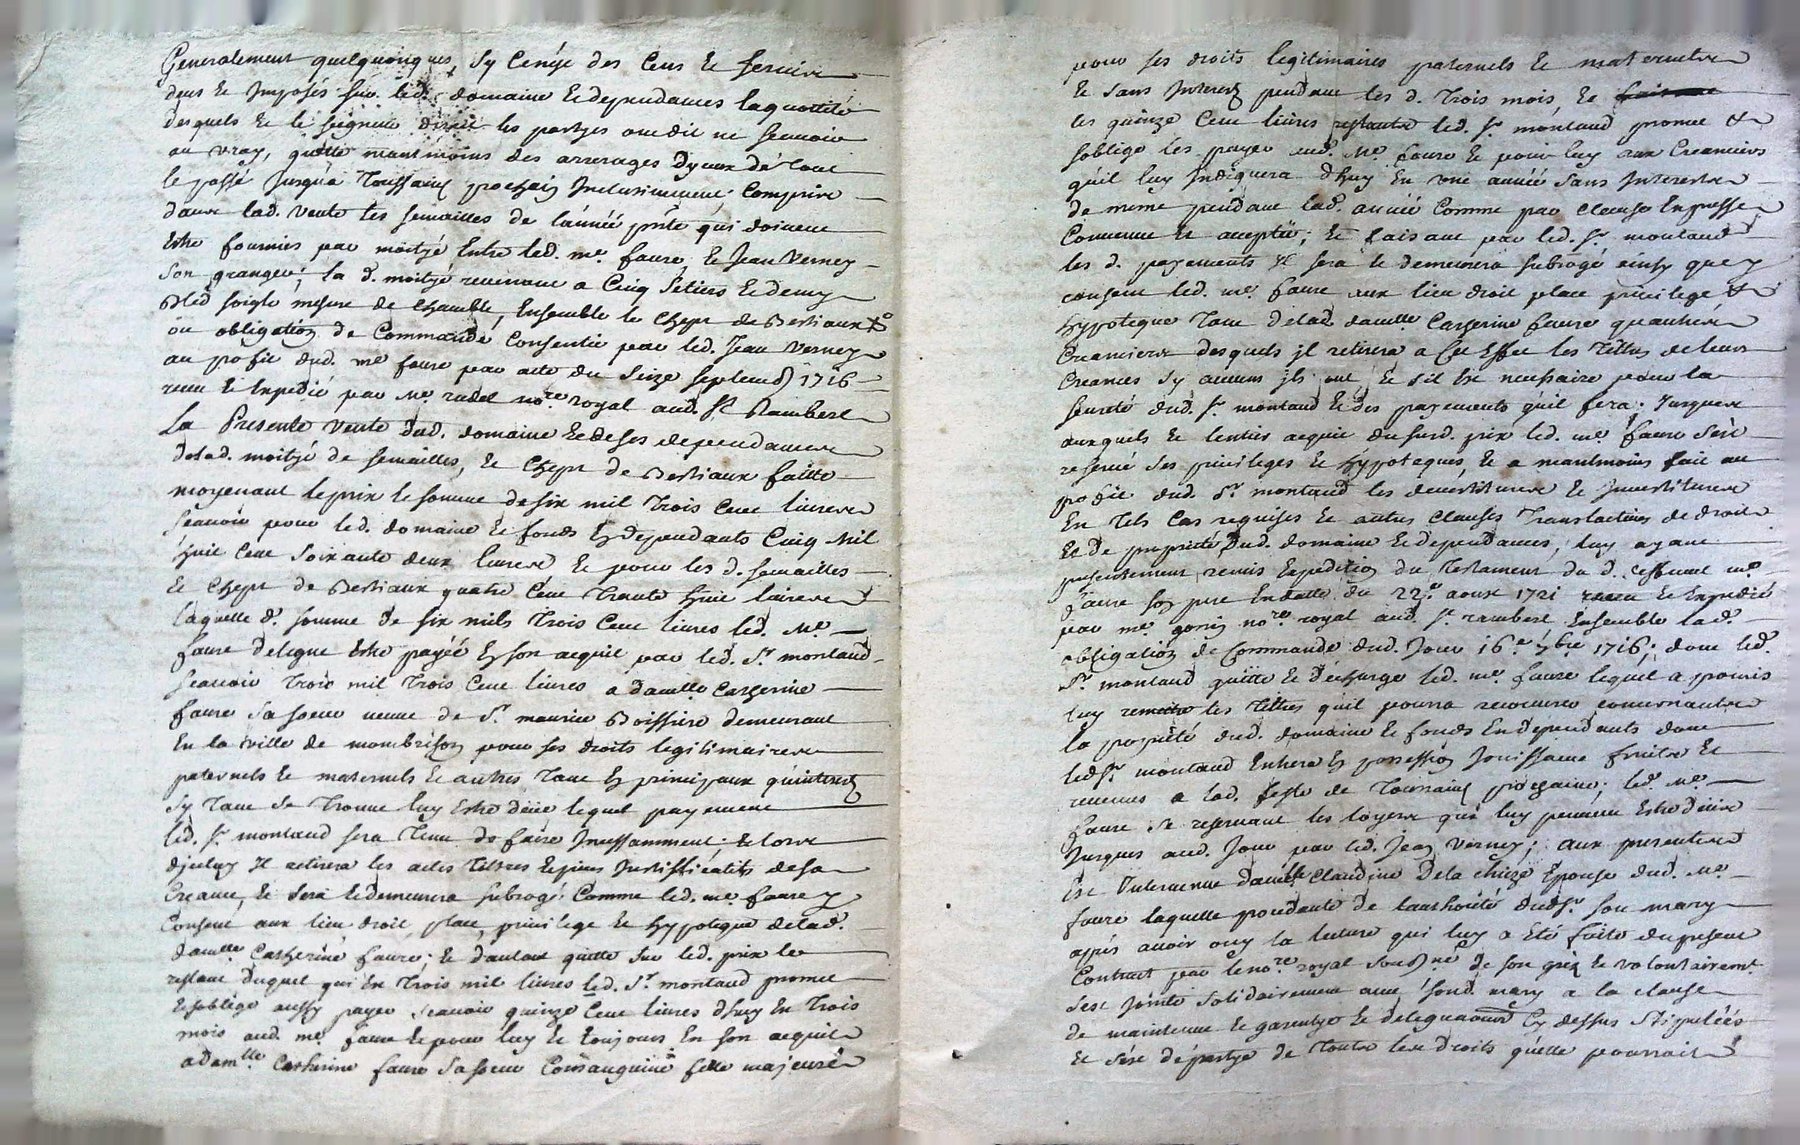 Generalement quelquonques, sy Cenge des Cens et service
deus et Imposés sur led. domaine et dependances laquottité
desquels et le seigneur direct les partyes ont dit ne scavoir
au vray, quitte neantmoins des arrerages dyceux de tout
le passé Jusqua Toussainct prochain Inclusivement Comprise
dans lad. vente les semailles de lannée pnte qui doivent
Estre fournies par moityé Entre led. me. faure et Jean Verney
son granger; la d. moityé revenant a Cinq setiers et demy
Bled seigle mesure de Chamble, Ensemble le Chept de Bestiaux
ou obligation de Commande Consentie par led. Jean Verney
au profit dud. me faure par acte du seize septembre 1716
receu et Expedié par me. rudel nore. royal aud. St Rambert
La Presente vente dud. domaine et de ses dependances
delad. moityé de semailles, et Chept de Bestiaux faitte
moyenant le prix et somme de six mil Trois Cent livres
scavoir pour led. domaine et fonds En dependants Cinq Mil
huit Cent soixante deux livres et pour les d. semailles
et Chept de Bestiaux quatre Cent Trante huit livres
laquelle d. somme de six mils Trois Cent livres led. Me.
faure delegue Estre payéé En son acquit par led. Sr. montaud
scavoir Trois mil Trois Cent livres a damlle Catherine
faure sa soeur veuve de Sr. maurice Boissiere demeurant
En la ville de mombrison pour ses droits legitimaires
paternels et maternels et autres Tant En principaux qu'interests
sy Tant se Trouve luy Estre deüe lequel payement
led. Sr. montaud sera Tenu de faire Incessamment. et lors
dyceluy Il retirera les actes Tiltres et pieces Justifficatifs desa
Creance, et sera et demeurera subrogé Comme led. me. faure y
Consent aux lieu droit, place, privilege et hypoteque delad.
damlle Catherine faure; et dautant quitte sur led. prix le
restant duquel qui Est Trois mil livres led. Sr. montaud promet
et soblige aussy payer scavoir quinze Cent livres dhuy En Trois
mois aud. me faure et pour luy et toujours En son acquit
a damlle Catherine faure sa soeur Consanguine fille majeure
pour ses droits legitimaires paternels et maternels
et sans Interest pendant les d. trois mois, et
les quinze Cent livres restants led. Sr. montaud promet et
soblige les payer aud. Me. faure et pour luy aux Creanciers
quil luy Indiquera dhuy En une année sans Interest
de meme pendant lad. année Comme par Clause Expresse
Convenue et acceptée; et faisant par led. Sr. montaud
les d. payements Il sera et demeurera subrogé ainsy que y
consent led. me. faure aux lieu droit place privilege et
hypoteque Tant delad. damlle Catherine faure quautres
Creanciers desquels il retirera a Cet Effet les Tiltres de leurs
Creances sy aucuns ils ont, et sil Est necessaire pour la
seureté dud. Sr. montaud et des payements quil fera; Jusques
auxquels et lentier acquit du susd. prix led. me. faure sest
reservé ses privileges et hypoteques, et a neantmoins fait au
profit dud. Sr. montaud les devestitures et Investitures
En Tels Cas requises et autres Clauses Translatives de droit
et de proprieté dud. domaine et dependances, luy ayant
presentement remis Expedition du Testament du d. deffunct me.
faure son pere En datte du 22e. aoust 1721 receu et Expedié
par me. gonin nore royal aud. St. rambert Ensemble lad.
obligation de Commande dud. Jour 16e. 7bre 1716; dont led.
Sr. montaud quitte et décharge led. me. faure lequel a promis
luy remettre les Tiltres quil pourra recouvrer concernants
la proprieté dud. domaine et fonds En dependants dont
led Sr. montaud Entrera En possession Jouissance fruits et
revenus a lad. feste de Toussainct prochaine; led. me.
faure se reservant les loyers qui luy peuvent Estre deüs
Jusques aud. Jour par led. Jean Verney; aux presentes
Est Intervenue damlle Claudine Dela Chieze Epouse dud. Me.
faure laquelle procedante de lauthorité dud Sr. son mary
après avoir ouy la lecture qui luy a Eté faite du present
Contract par le nore royal soubsné de son gré et volontairemt.
sest Jointe solidairement avec sond. mary a la clause
de maintenue et garentye et delegations Cy dessus stipulées
et sest départye de Touts les droits quelle pourroit